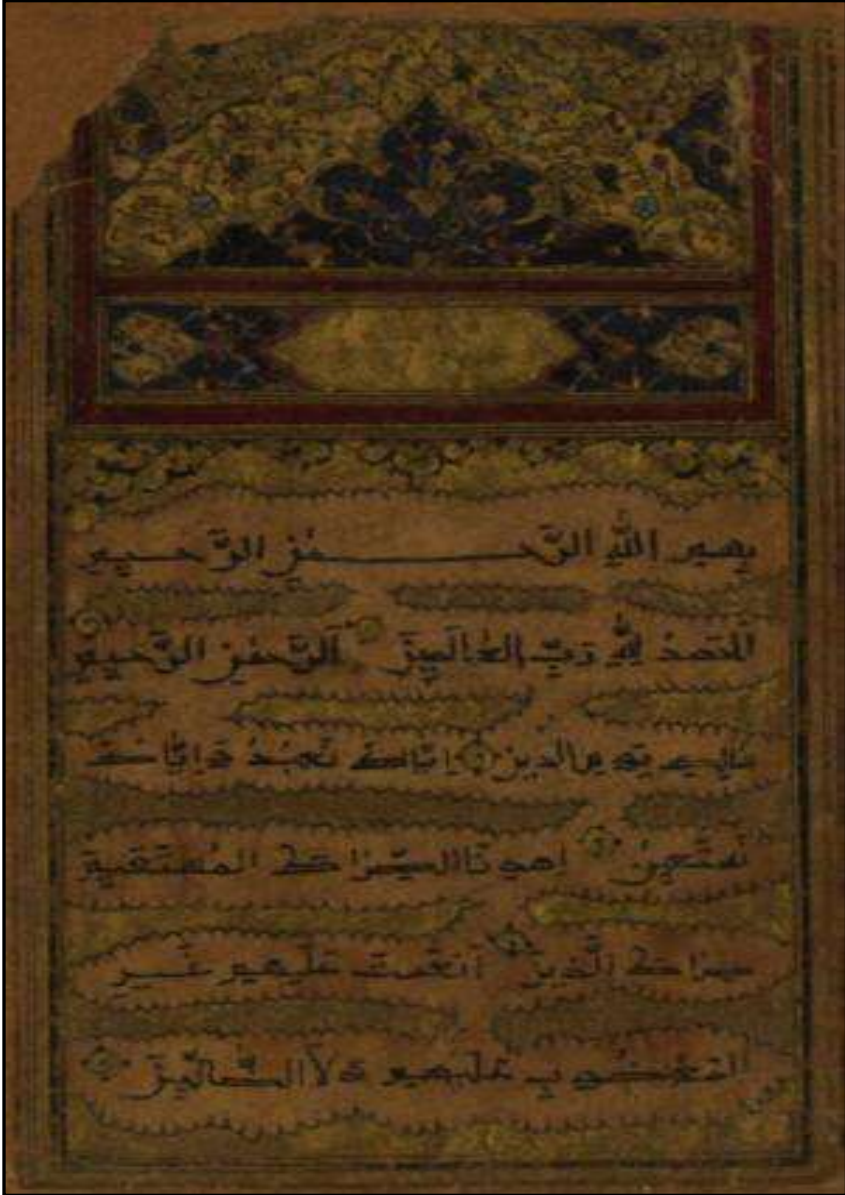 بسم الله الرَّحمٰنِ الرَّحيم
اَلحَمدُ لِلّٰهِ رَبِّ العالَمينَ اَلرَّحمٰنِ الرَّحيمِ
مالِكِ يَومِ الدينِ اِيّاكَ نَعبُدُ وَاِيّاكَ
نَستَعينُ اِهدِنَا الصِّراطَ المُستَقيمَ
صِراطَ الَّذينَ اَنعَمتَ عَلَيهِم غَيرِ
المَغضُوبِ عَلَيهِم وَلَا الضّالّينَ